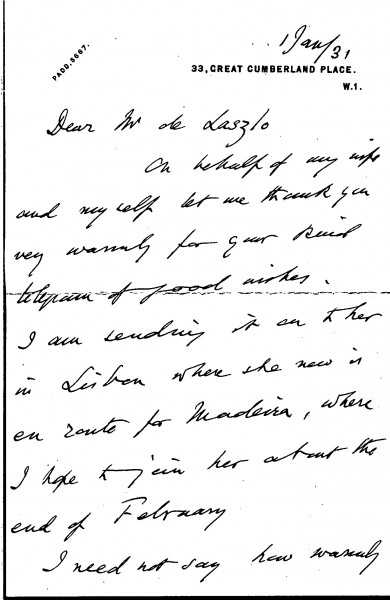 PADD. 5667.
1 Jan/31
33, GREAT CUMBERLAND PLACE.
W.1.
Dear Mr de Laszlo
On behalf of my wife
and myself let me thank you
very warmly for your kind
telegram of good wishes.
I am sending it on to her
in Lisbon where she now is
en route for Madeira, where
I hope to join her about the
end of February
I need not say how warmly